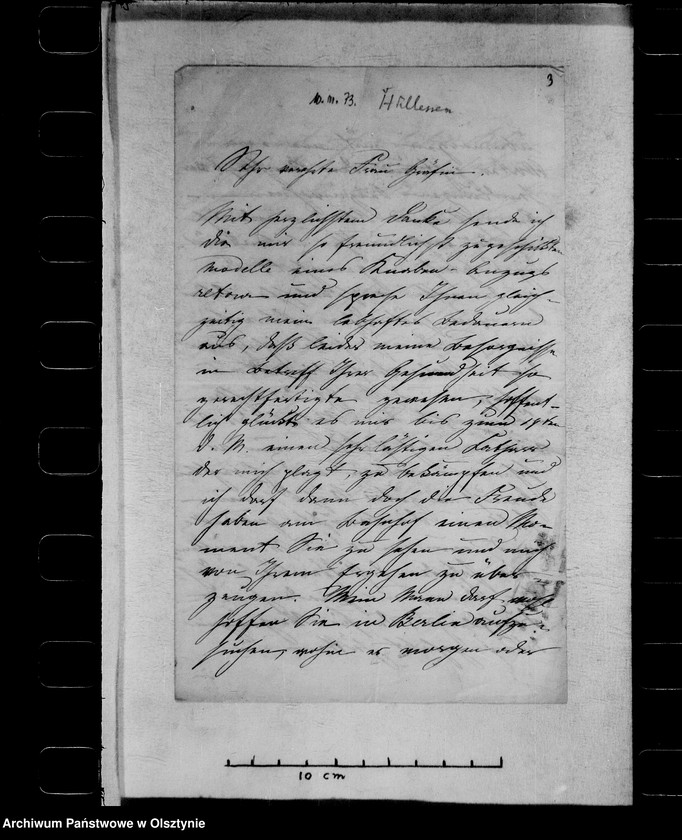 3
10. III. 73. Hüllessen
Sehr verehrte Frau Gräfin.
Mit herzlichstem Danke sende ich
die mir so freundlichst zugeschickten
Modelle eines Knaben-Anzugs
retour und spreche Ihnen gleich-
zeitig mein lebhaftes Bedauern
aus, daß leider meine Besorgnisse
in Betreff Ihrer Gesundheit so
gerechtfertigte gewesen, hoffent-
lich glückt es mir bis zum 19ten
d. M. einen sehr lästigen Catharr
der mich plagt, zu bekämpfen und
ich darf dann doch die Freude
haben am Bahnhof einen Mo-
ment Sie zu sehen und mich
von Ihrem Ergehen zu über
zeugen. Mein Mann darf
hoffen Sie in Berlin aufzu-
suchen, wohin er morgen oder
10 cm
Archiwum Państwowe w Olsztynie